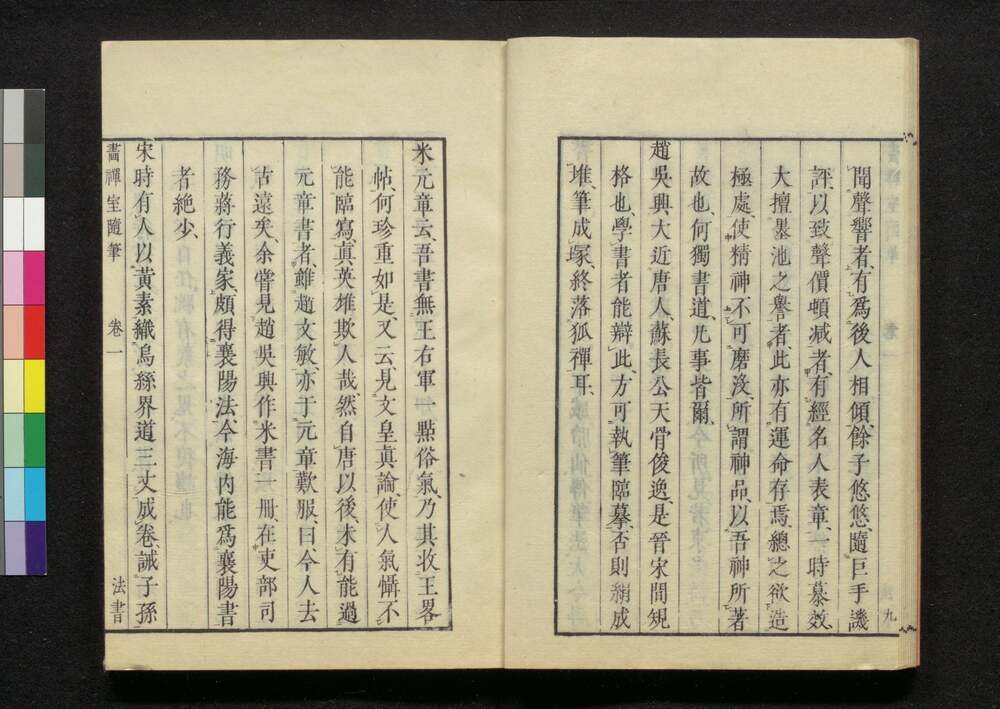 聞聲響者、有爲後人相傾、餘子悠悠、隨巨手譏
評、以致聲價頓减者、有經名人表章、一時慕效、
大擅墨池之譽者、此亦有運命存焉、總之欲造
極處、使精神不可磨沒、所謂神品、以吾神所著
故也、何獨書道、凡事皆爾、
趙吳興大近唐人、蘇長公天骨俊逸、是晉宋間規
格也、學書者能辯此、方可執筆臨摹、否則縑成
堆、筆成塚、終落狐禪耳、
九
米元章云、吾書無王右軍一點俗氣、乃其收王畧
帖、何珍重如是、又云、見文皇眞諭、使人氣懾、不
能臨寫、眞英雄欺人哉、然自唐以後、未有能過
元章書者、雖趙文敏、亦于元章歎服、曰今人去
古遠矣、余嘗見趙吳興作米書一册、在吏部司
務蔣行義家、頗得襄陽法、今海內能爲襄陽書
者絶少、
宋時有人以黃素織烏絲界道三丈成卷、誡子孫
畵禪室隨筆 卷一 法書